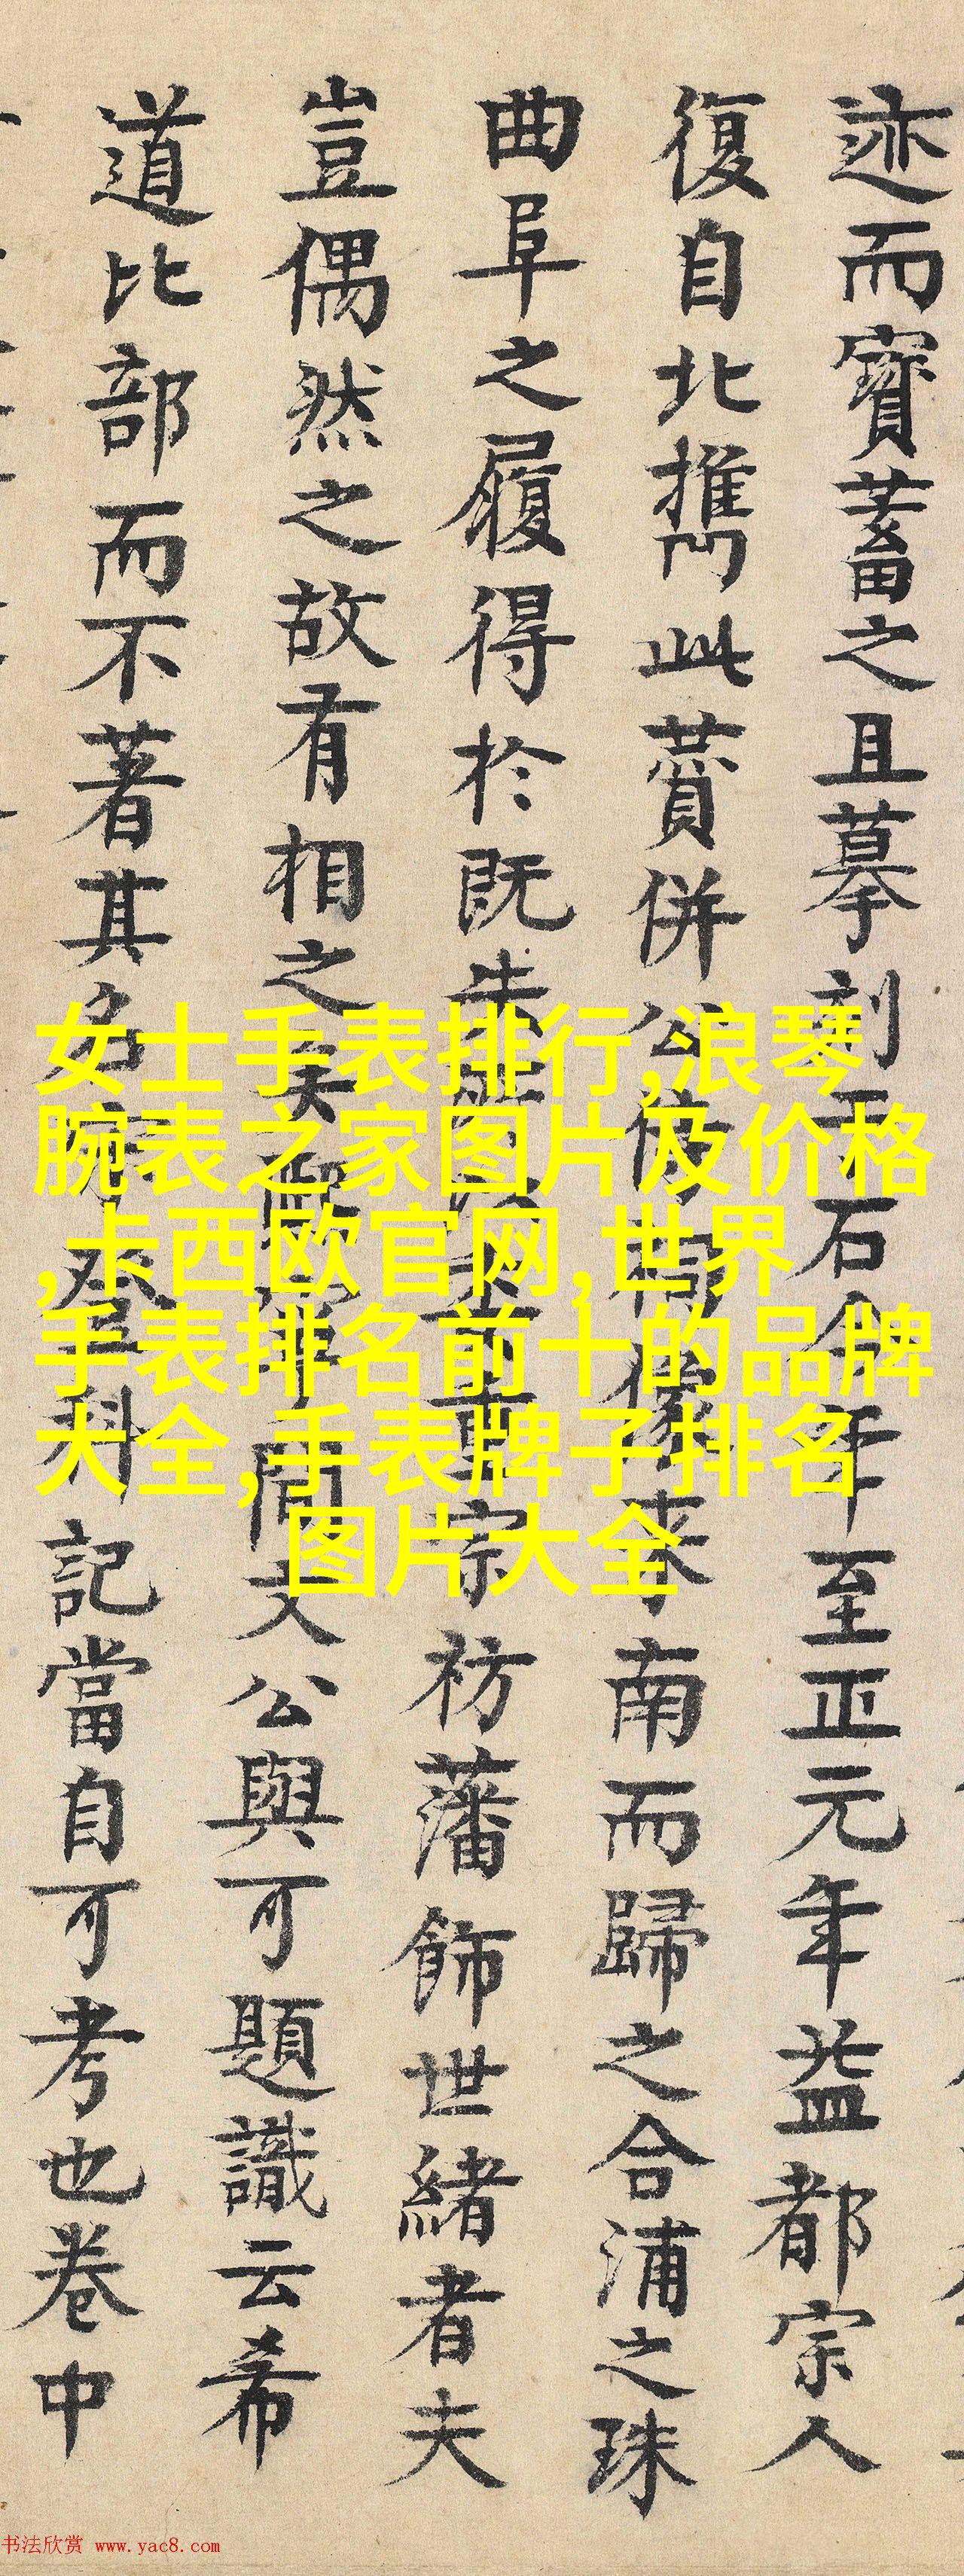 迹而寶蓄之且摹刻于石今年至正元年益都宗人
復自北攜此賛併公像來南而歸之合浦之珠
曲阜之履得於既失前重宗祊藩飾世緒者夫
豈偶然之故有相之矣周文公與可題識云希
道比部而不著其名字登科記當自可考也卷中
女士手表排行,浪琴
腕表之家图片及价格
,卡西欧官网,世界
手表排名前十的品牌
大全,手表牌子排名
图片大全
书法欣赏 www.yac8.com